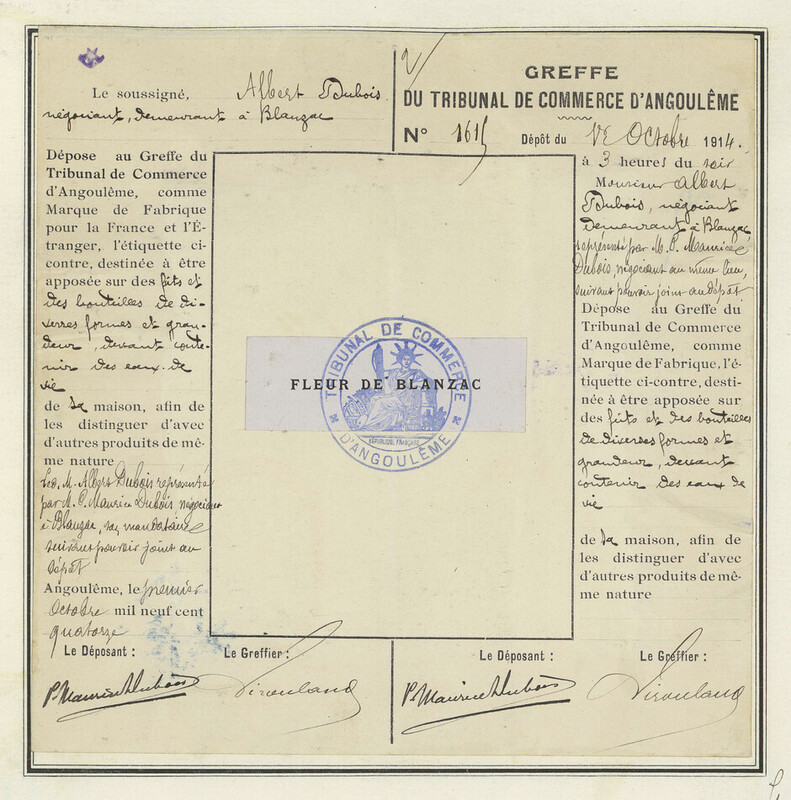 Le soussigné, Albert Dubois
négociant, demeurant à Blanzac
Dépose au Greffe du
Tribunal de Commerce
d'Angoulême, comme
Marque de Fabrique
pour la France et l'É-
tranger, l'étiquette ci-
contre, destinée à être
apposée sur des fûts et
des bouteilles de di-
verses formes et gran-
deur, devant conte-
nir des eaux-de-
vie
de sa maison, afin de
les distinguer d'avec
d'autres produits de mê-
me nature
M. Albert Dubois représenté
par M. P. Maurice Dubois, négociant
à Blanzac, son mandataire
suivant pouvoir joint au
dépôt
Angoulême, le premier
Octobre mil neuf cent
quatorze
Le Déposant : Le Greffier :
P. Maurice Dubois
FLEUR DE BLANZAC
TRIBUNAL DE COMMERCE
RÉPUBLIQUE FRANÇAISE
D'ANGOULÊME
2/
GREFFE
DU TRIBUNAL DE COMMERCE D'ANGOULÊME
N° 1615 Dépôt du Octobre 1914.
à 3 heures du soir
Monsieur Albert
Dubois, négociant
demeurant à Blanzac
représenté par M. P. Maurice
Dubois, négociant au même lieu,
suivant pouvoir joint au dépôt
Dépose au Greffe du
Tribunal de Commerce
d'Angoulême, comme
Marque de Fabrique, l'é-
tiquette ci-contre, desti-
née à être apposée sur
des fûts et des bouteilles
de diverses formes et
grandeur, devant
contenir des eaux de
vie
de sa maison, afin de
les distinguer d'avec
d'autres produits de mê-
me nature
Le Déposant : Le Greffier :
P. Maurice Dubois